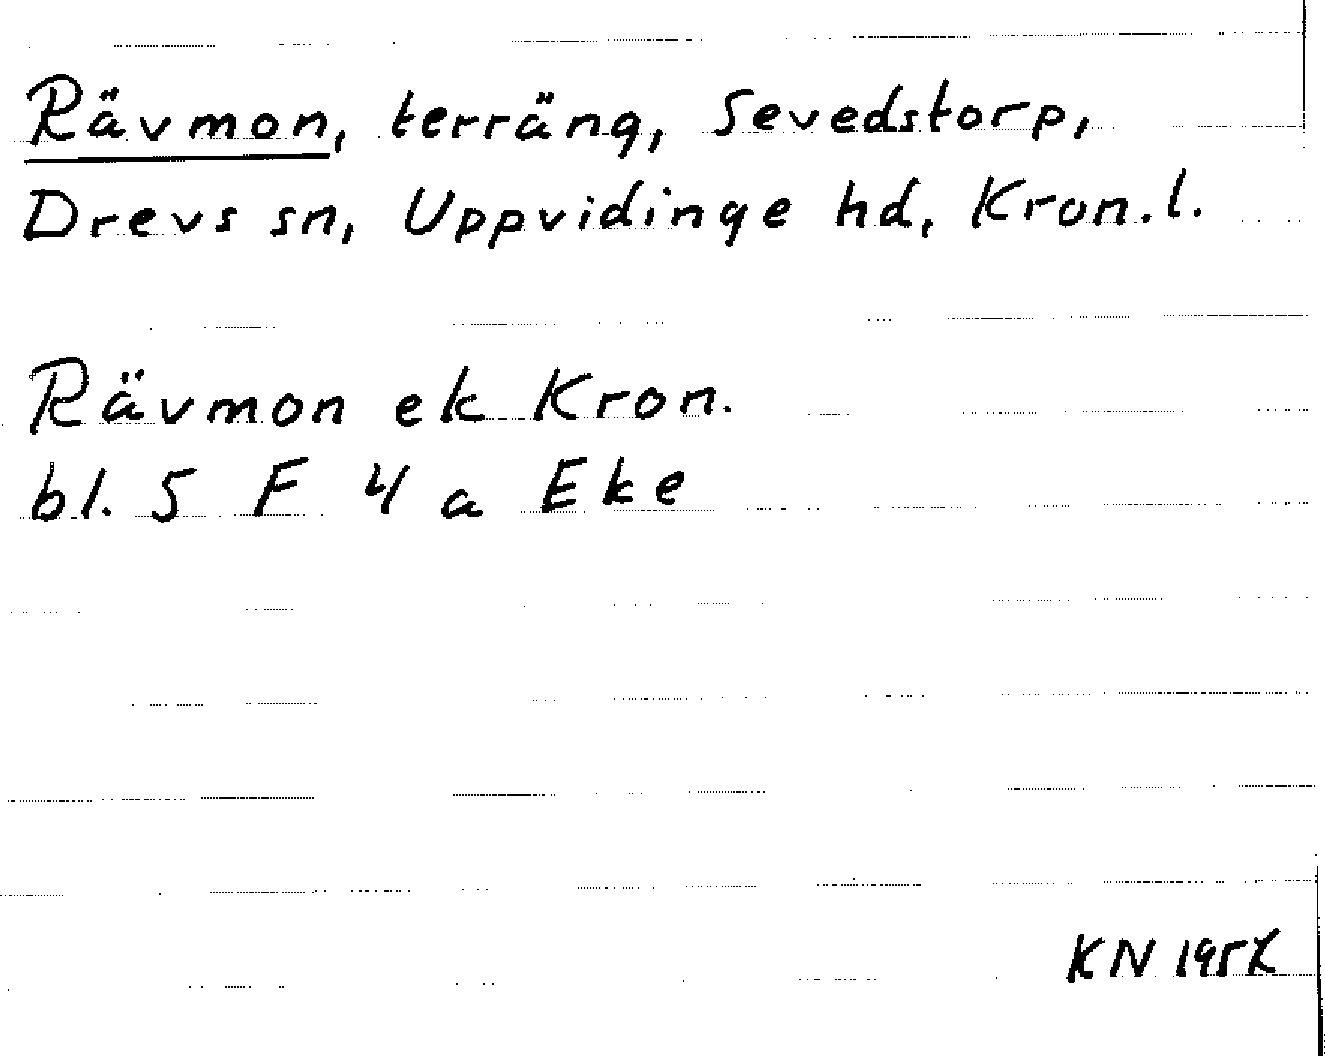 Rävmon, terräng, Sevedstorp,
Drevs sn, Uppvidinge hd, Kron.l.
Rävmon ek Kron.
bl. 5 F 4 a Eke
KN